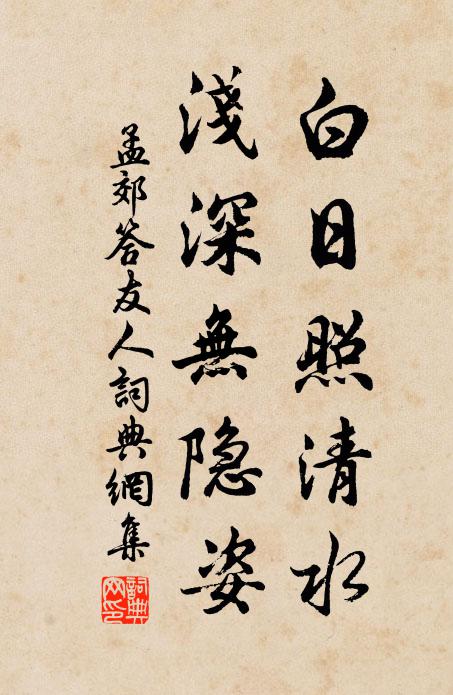 白日照清水
淺深無隐姿
孟郊答友人詞典網集
詞典網印